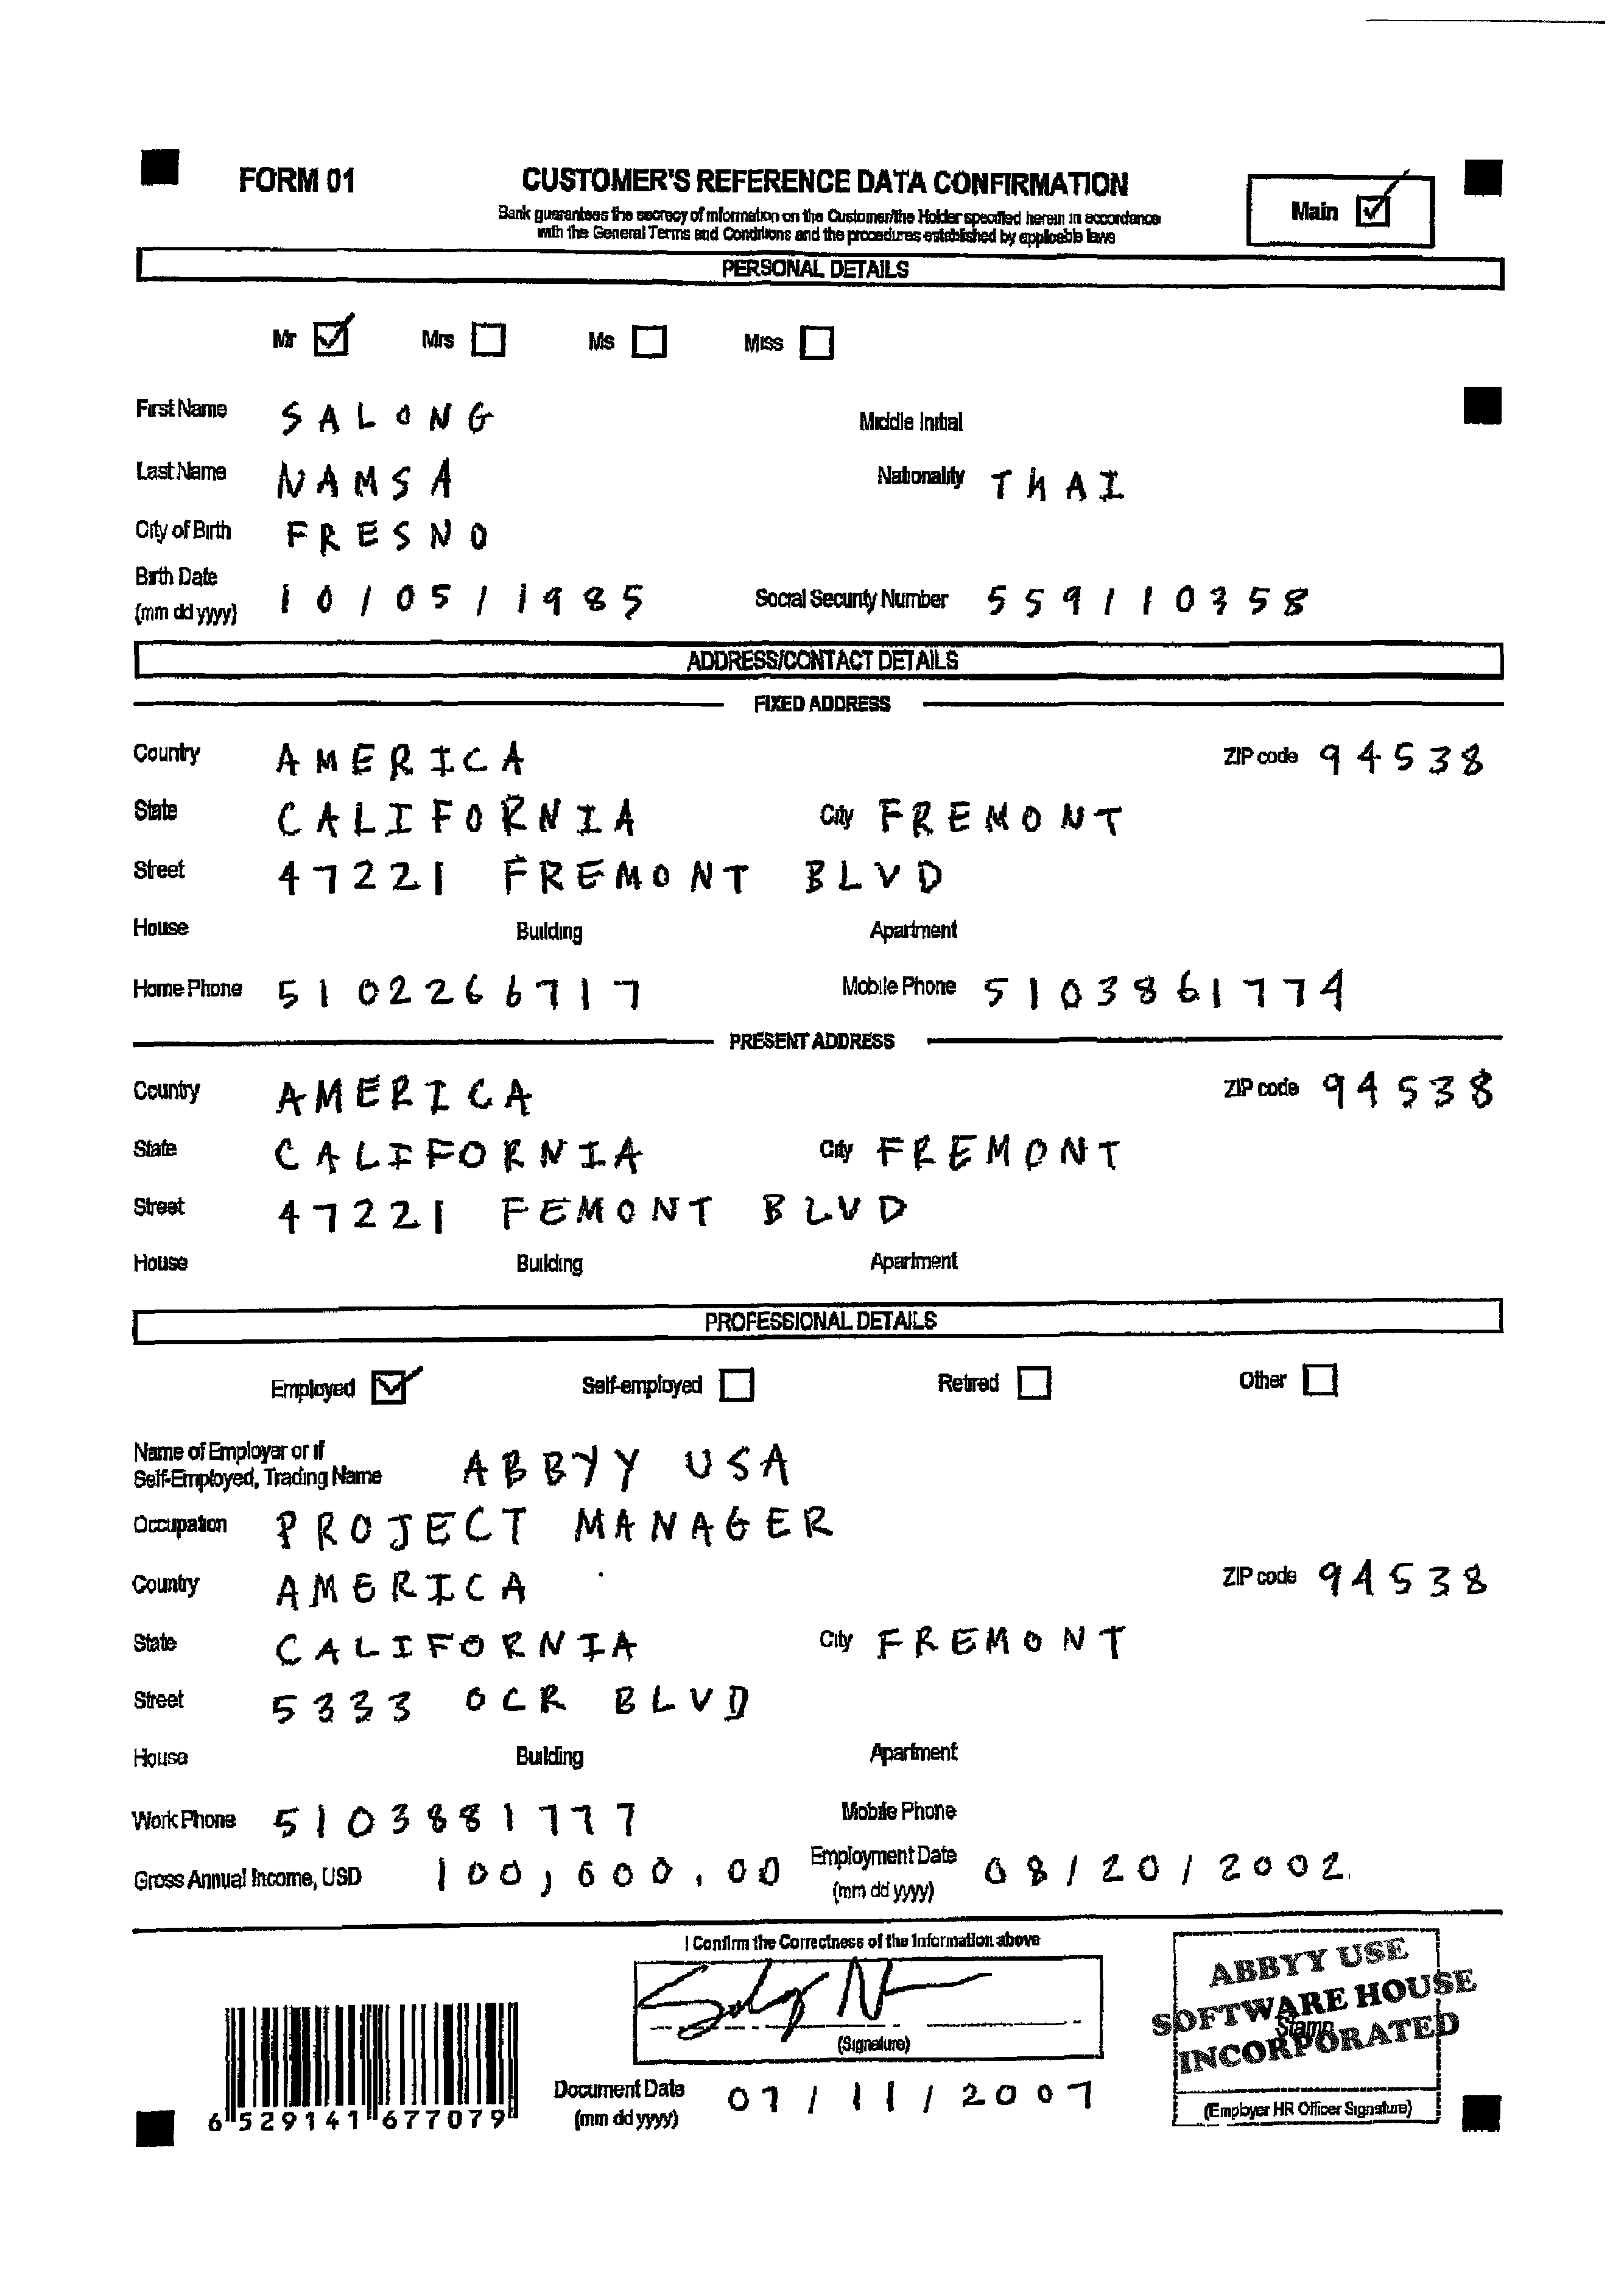 FORM 01
CUSTOMER'S REFERENCE DATA CONFIRMATION
Bank guarantees the secrecy of information on the Customer/the Holder specified herein in accordance
with the General Terms and Conditions and the procedures established by applicable laws
Main
PERSONAL DETAILS
Mr Mrs Ms Miss
First Name SALONG Middle Initial
Last Name NAMSA Nationality THAI
City of Birth FRESNO
Birth Date
(mm dd yyyy) 10/05/1985 Social Security Number 559110358
ADDRESS/CONTACT DETAILS
FIXED ADDRESS
Country AMERICA ZIP code 94538
State CALIFORNIA City FREMONT
Street 47221 FREMONT BLVD
House Building Apartment
Home Phone 5102266717 Mobile Phone 5103861774
PRESENT ADDRESS
Country AMERICA ZIP code 94538
State CALIFORNIA City FREMONT
Street 47221 FEMONT BLVD
House Building Apartment
PROFESSIONAL DETAILS
Employed Self-employed Retired Other
Name of Employer or if
Self-Employed, Trading Name ABBYY USA
Occupation PROJECT MANAGER
Country AMERICA ZIP code 94538
State CALIFORNIA City FREMONT
Street 5333 OCR BLVD
House Building Apartment
Work Phone 5103881777 Mobile Phone
Gross Annual Income, USD 100,600.00 Employment Date
(mm dd yyyy) 08/20/2002
I Confirm the Correctness of the Information above
(Signature)
ABBYY USE
SOFTWARE HOUSE
Stamp
INCORPORATED
(Employer HR Officer Signature)
Document Date
(mm dd yyyy) 07/11/2007
6 529141 677079